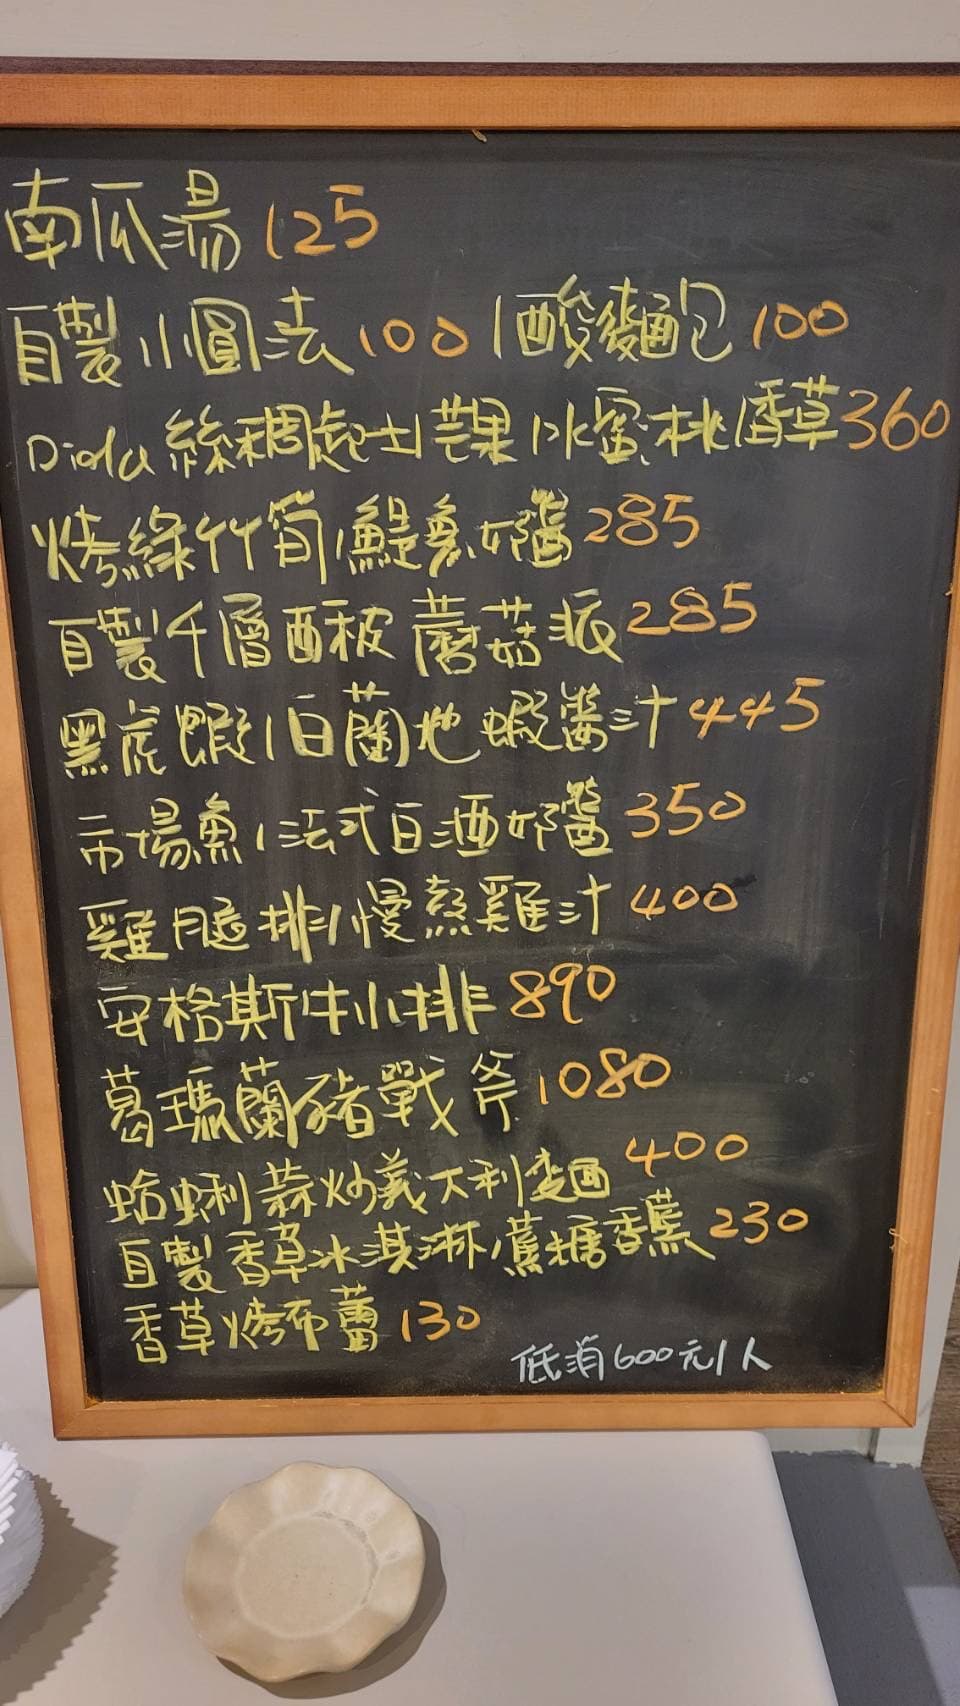 南瓜湯 125
自製小圓法 100 / 酸麵包 100
Diolu 絲稠起士芒果/水蜜桃/香草 360
烤綠竹筍/鯷魚奶醬 285
自製千層酥皮蘑菇派 285
黑虎蝦/白蘭地蝦醬汁 445
市場魚/法式白酒奶醬 350
雞腿排/慢熬雞汁 400
安格斯牛小排 890
葛瑪蘭豬戰斧 1080
蛤蜊蒜炒義大利麵 400
自製香草冰淇淋/蔗糖香蕉 230
香草烤布蕾 130
低消600元/人